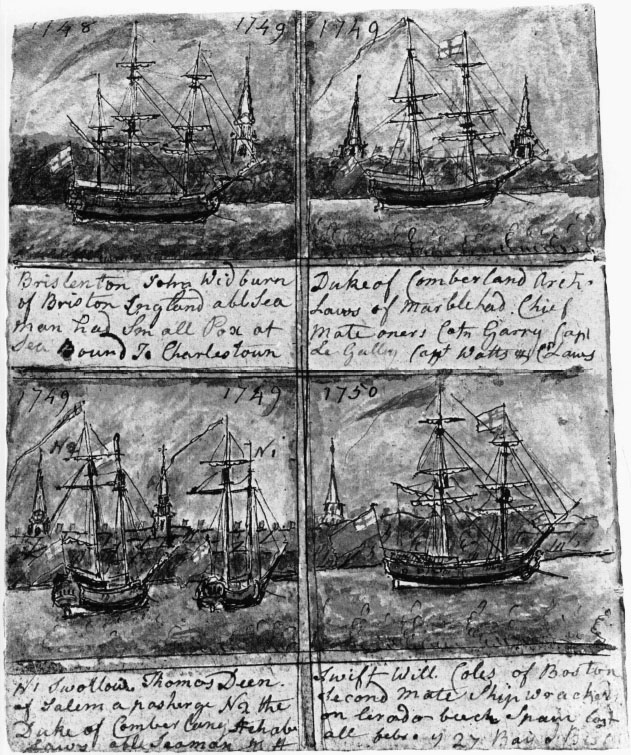 1748 1749
Bristenton John Widburn
of Briston England abl Sea
man had Small Pox at
Sea Bound To Charlestown
1749
Duke of Comberland Arch.
Laws of Marblehad. Chief
Mate oners Cotn Garry Capt
Le Gally Capt Watts Laws
1749 1749
N2 N1
N1 Swollow Thomas Deen
of Salem a pasherge N2 the
Duke of Comberland
Laws able Seaman
1750
Swift Will Coles of Boston
Second Mate Ship wracked
on beech Spain Lost
all 27 Bay